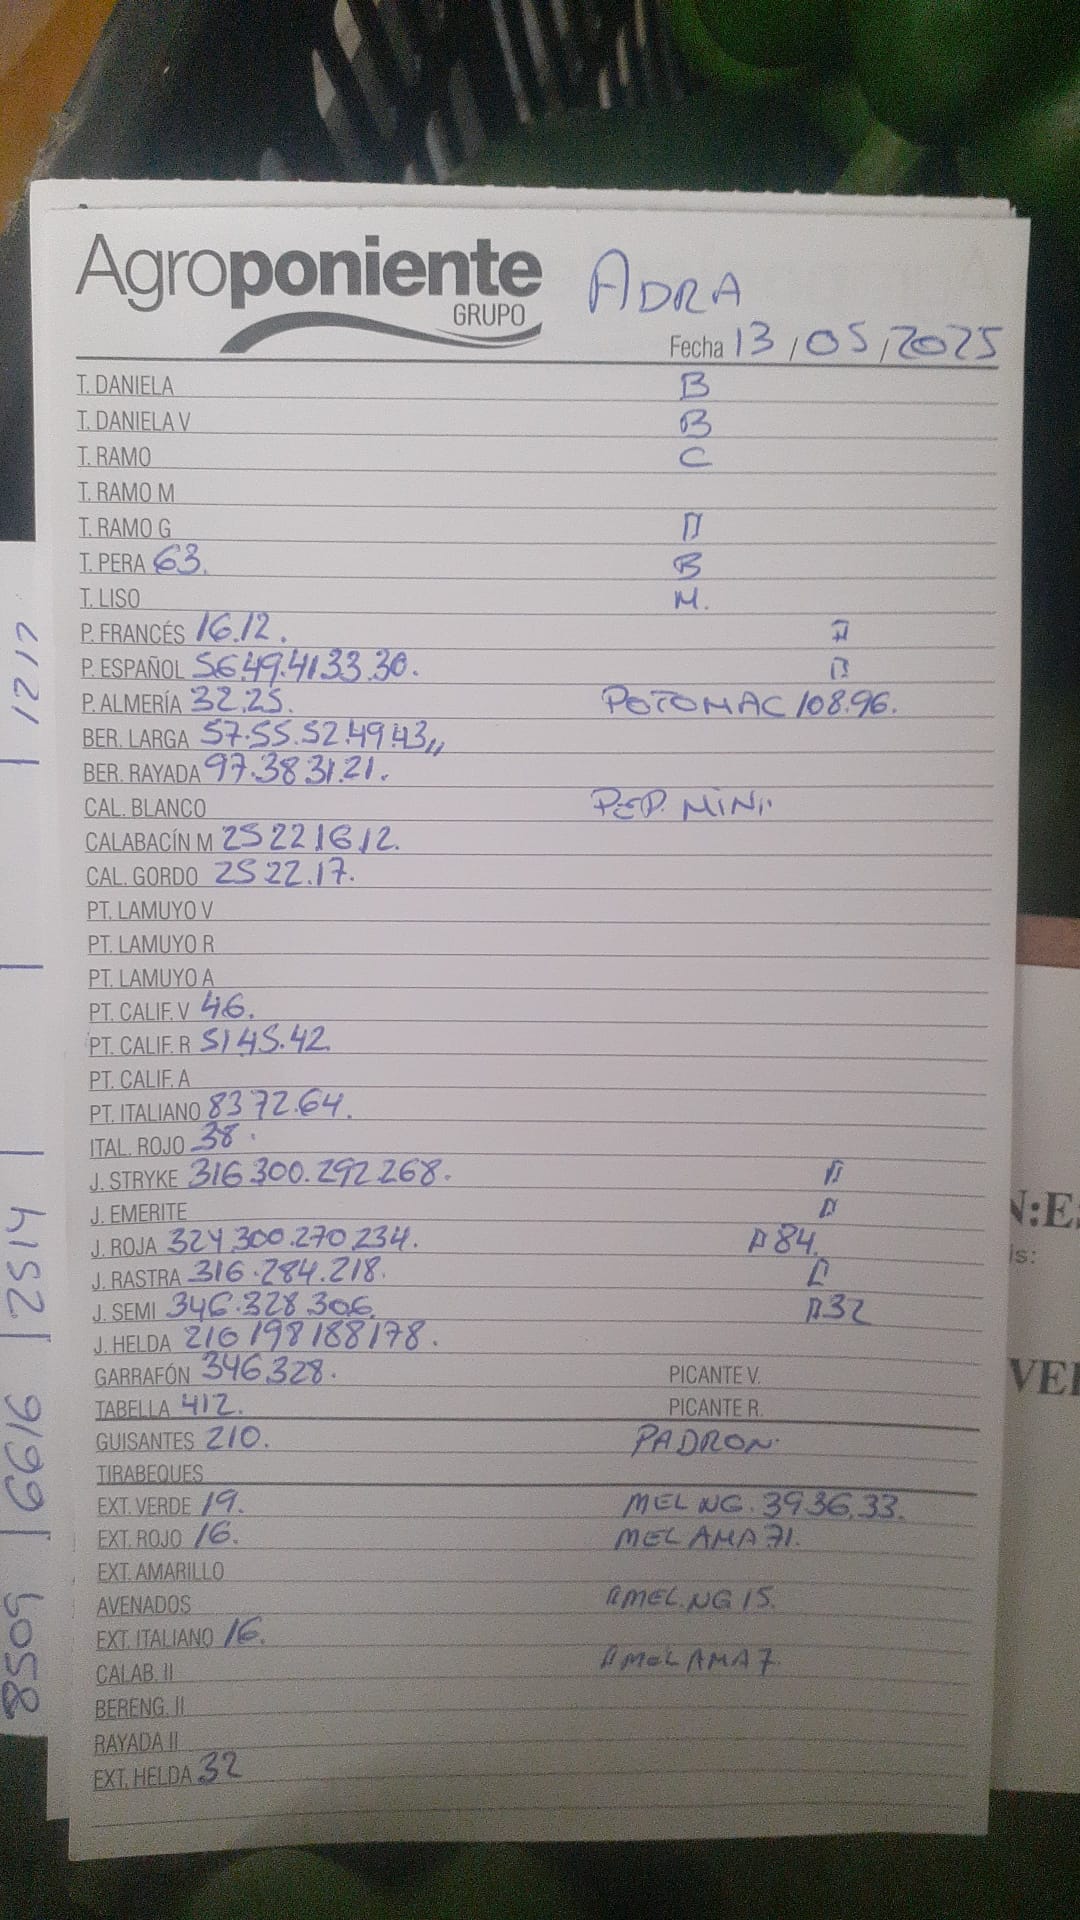 Agroponiente
GRUPO
ADRA
Fecha 13/05/2025
T. DANIELA B
T. DANIELA V B
T. RAMO C
T. RAMO M
T. RAMO G
T. PERA 63. B
T. LISO M.
P. FRANCÉS 16.12.
P. ESPAÑOL 56.49.41.33.30.
P. ALMERÍA 32.25. POTOMAC 108.96.
BER. LARGA 57.55.52.49.43,,
BER. RAYADA 97.38 31.21.
CAL. BLANCO PEP. MINI
CALABACÍN M 25 22 16 12.
CAL. GORDO 25 22.17.
PT. LAMUYO V
PT. LAMUYO R
PT. LAMUYO A
PT. CALIF. V 46.
PT. CALIF. R 51 45.42
PT. CALIF. A
PT. ITALIANO 83 72.64.
ITAL. ROJO 38.
J. STRYKE 316 300.292 268.
J. EMERITE
J. ROJA 324 300.270 234. 84.
J. RASTRA 316.284.218.
J. SEMI 346.328 306. 32
J. HELDA 216 198 188 178.
GARRAFÓN 346 328. PICANTE V.
TABELLA 412. PICANTE R.
GUISANTES 210. PADRON.
TIRABEQUES
EXT. VERDE 19. MEL NG. 39 36.33.
EXT. ROJO 16. MEL AMA 71.
EXT. AMARILLO
AVENADOS MEL.NG 15.
EXT. ITALIANO 16.
CALAB. II MEL AMA 7.
BERENG. II
RAYADA II
EXT. HELDA 32
8509 | 6616 | 2514 | | 1217
N:E
is:
VE